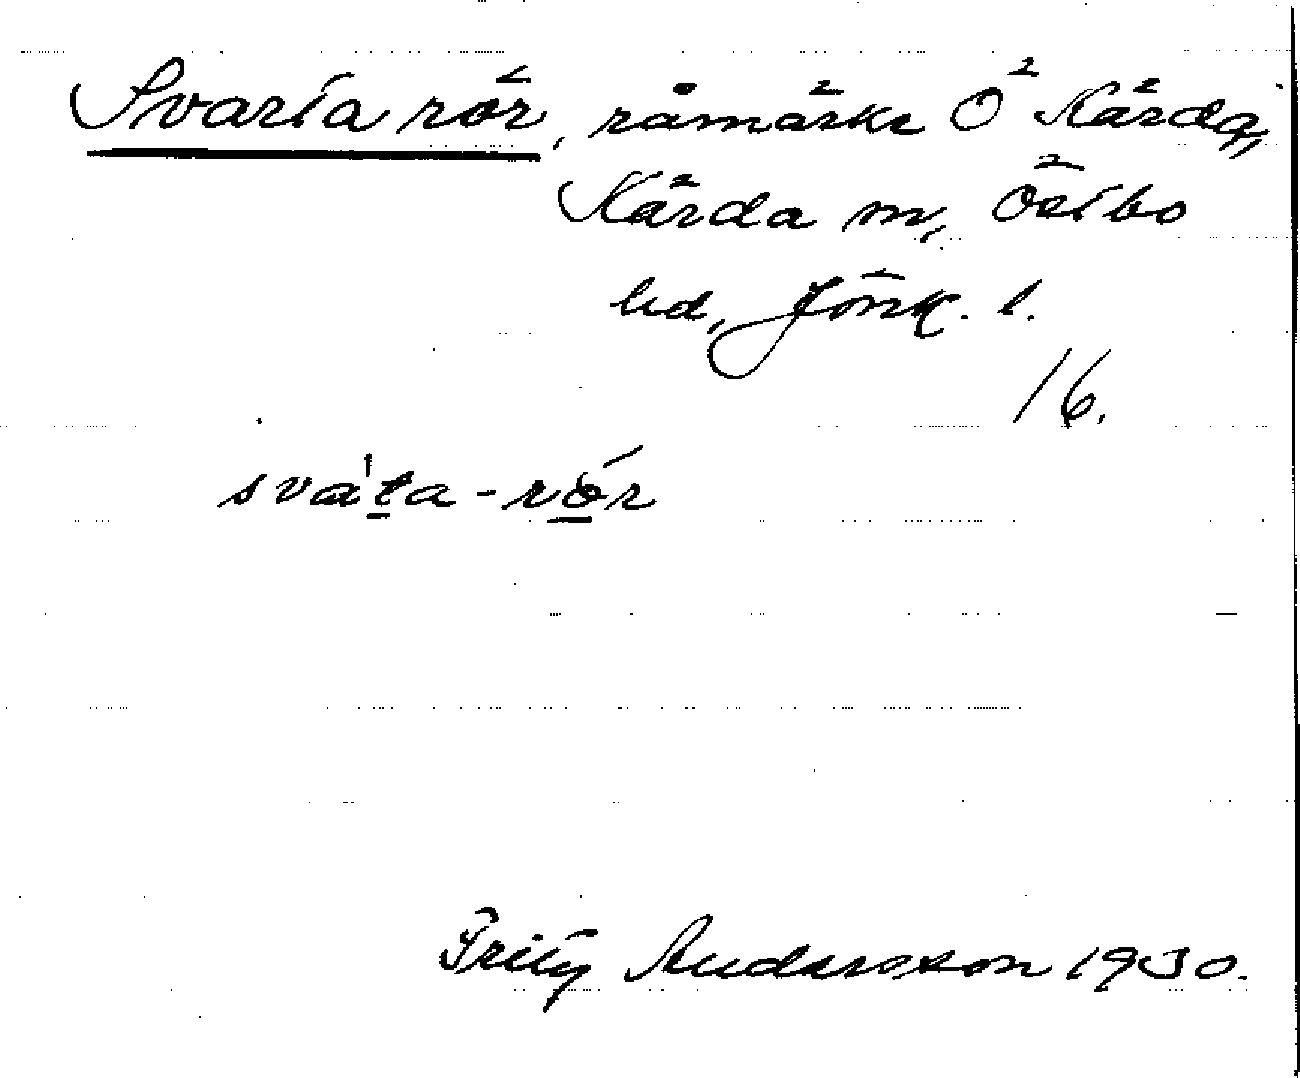 Svarta rör, råmärke Ö Kärda,
Kärda sn, Östbo
hd, Jönk. l.
16.
sva'ta-rör
Fritz Andersson 1930.